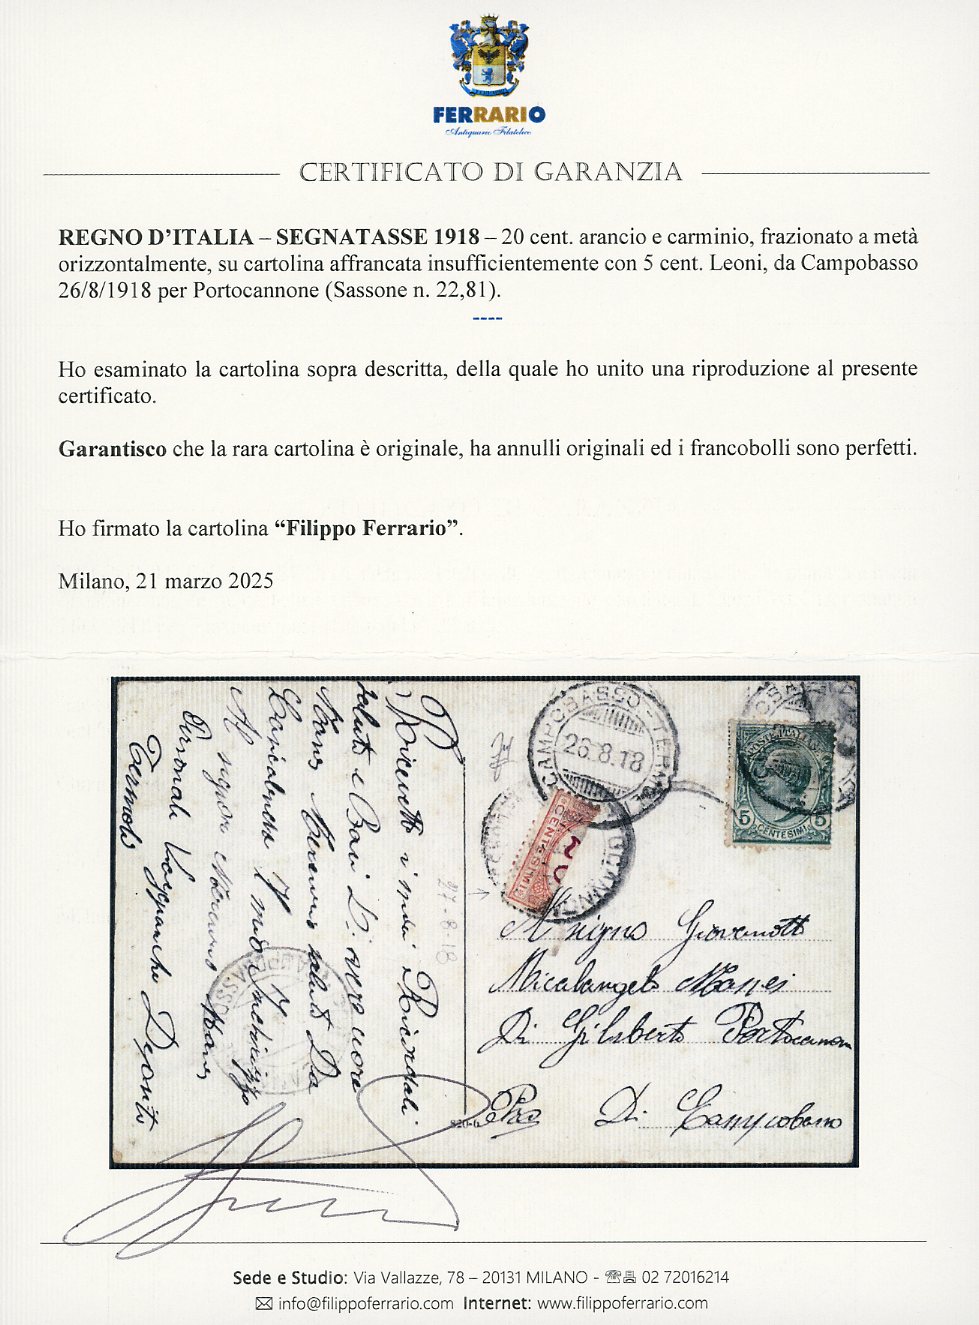 FERRARIO
Antiquario Filatelico
CERTIFICATO DI GARANZIA
REGNO D'ITALIA – SEGNATASSE 1918 – 20 cent. arancio e carminio, frazionato a metà
orizzontalmente, su cartolina affrancata insufficientemente con 5 cent. Leoni, da Campobasso
26/8/1918 per Portocannone (Sassone n. 22,81).
----
Ho esaminato la cartolina sopra descritta, della quale ho unito una riproduzione al presente
certificato.
Garantisco che la rara cartolina è originale, ha annulli originali ed i francobolli sono perfetti.
Ho firmato la cartolina “Filippo Ferrario”.
Milano, 21 marzo 2025
Ricevetti i
saluti e Baci Di vero cuore
saluto Da
Al signor
Termoli
27-8-18
CAMPOBASSO - TERMOLI
26.8.18
CENTESIMI
20
5 5
CENTESIMI
Al signo Giovenott
Micalangelo Mannes
Di Gilaberto Portocannon
Di Campobasso
820-6
Sede e Studio: Via Vallazze, 78 – 20131 MILANO - ☏ 02 72016214
✉ info@filippoferrario.com Internet: www.filippoferrario.com